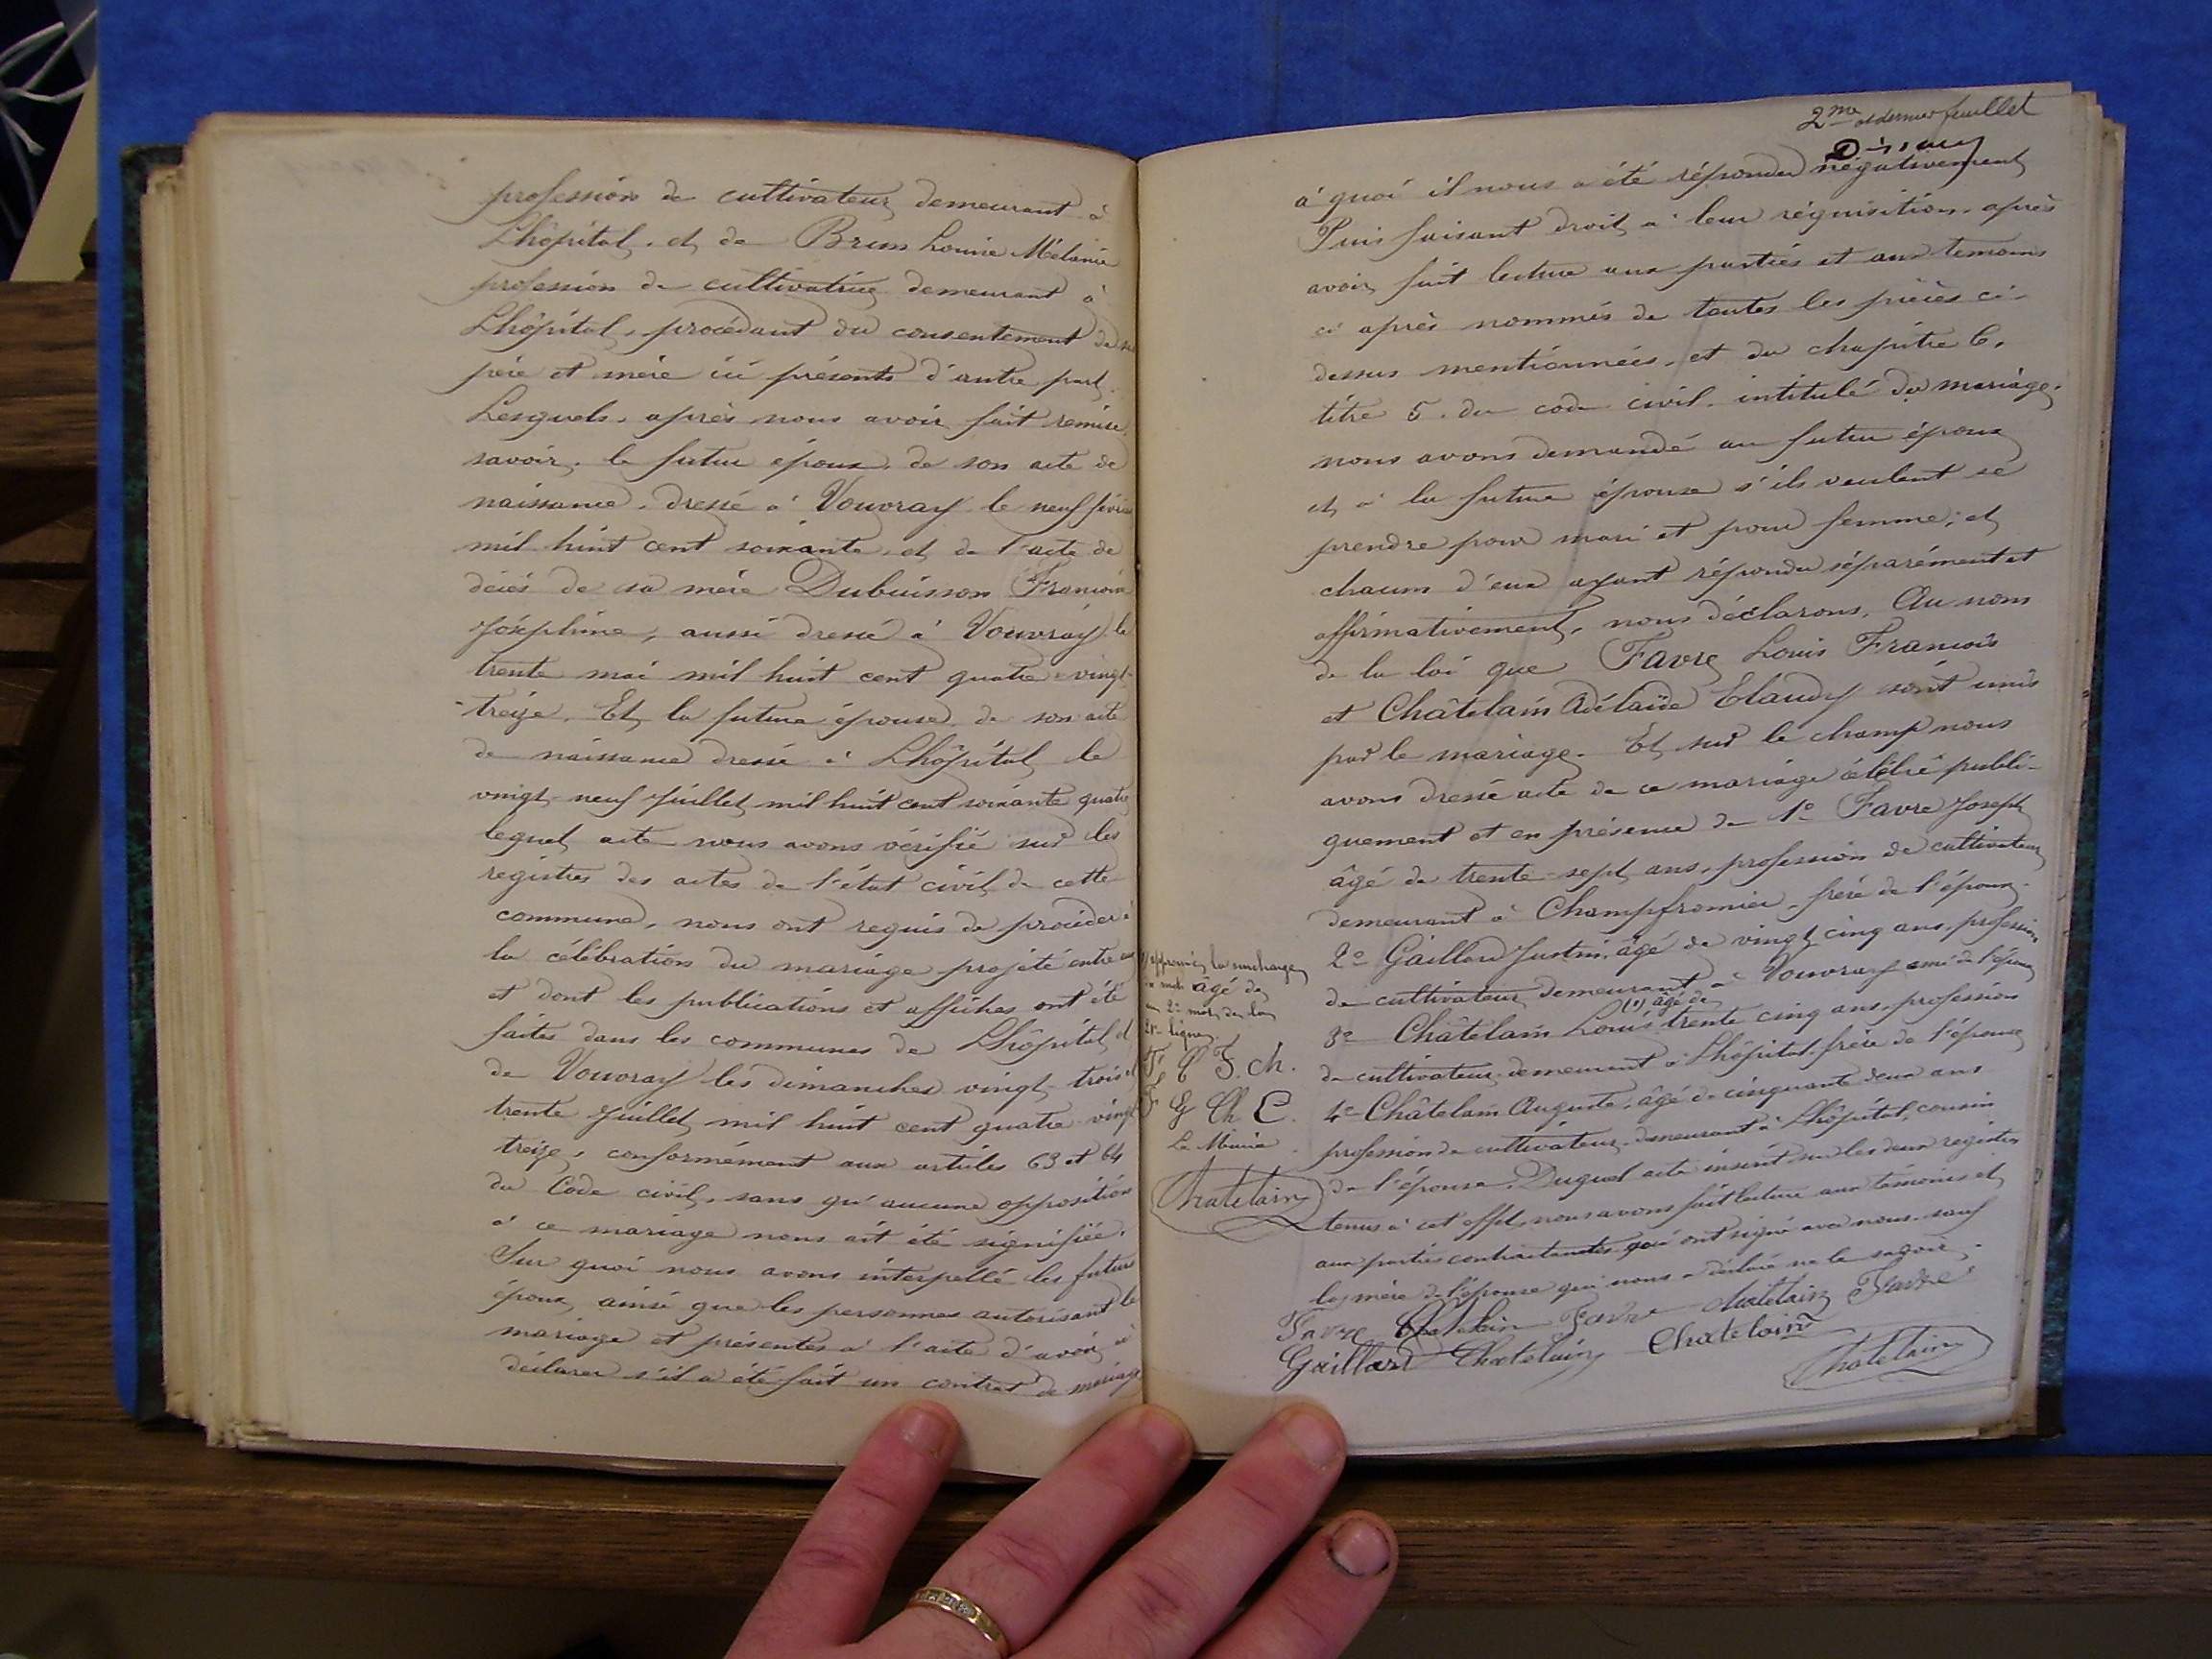 profession de cultivateur demeurant à
Lhôpital, et de Brun Louise Mélanie
profession de cultivatrice demeurant à
Lhôpital, procédant du consentement de ses
père et mère ici présents d'autre part.
Lesquels, après nous avoir fait remise,
savoir, le futur époux, de son acte de
naissance, dressé à Vouvray le neuf février
mil huit cent soixante, et de l'acte de
décès de sa mère Dubuisson Françoise
Joséphine, aussi dressé à Vouvray le
trente mai mil huit cent quatre-vingt-
-treize. Et la future épouse de son acte
de naissance dressé à Lhôpital le
vingt-neuf Juillet mil huit cent soixante quatre
lequel acte nous avons vérifié sur les
registres des actes de l'état civil de cette
commune, nous ont requis de procéder à
la célébration du mariage projeté entre eux
et dont les publications et affiches ont été
faites dans les communes de Lhôpital et
de Vouvray les dimanches vingt-trois et
trente Juillet mil huit cent quatre vingt
treize, conformément aux articles 63 et 64
du Code civil, sans qu'aucune opposition
à ce mariage nous ait été signifiée.
Sur quoi nous avons interpellé les futurs
époux, ainsi que les personnes autorisant le
mariage et présentes à l'acte d'avoir à
déclarer s'il a été fait un contrat de mariage
2me et dernier feuillet
à quoi il nous a été répondu négativement
Puis faisant droit à leur réquisition, après
avoir fait lecture aux parties et aux témoins
ci après nommés de toutes les pièces ci-
dessus mentionnées, et du chapitre 6,
titre 5. du code civil. intitulé du mariage.
nous avons demandé au futur époux
et à la future épouse s'ils veulent se
prendre pour mari et pour femme; et
chacun d'eux ayant répondu séparément et
affirmativement, nous déclarons, Au nom
de la loi que Favre Louis François
et Châtelain Adélaïde Claudy sont unis
par le mariage. Et sur le champ nous
avons dressé acte de ce mariage célébré publi-
quement et en présence de 1º Favre Joseph
âgé de trente-sept ans, profession de cultivateur
demeurant à Champfromier, frère de l'époux.
2º Gaillard Justin, âgé de vingt cinq ans, profession
de cultivateur demeurant à Vouvray ami de l'époux
3º Châtelain Louis (1) âgé de trente cinq ans, profession
de cultivateur demeurant à Lhôpital frère de l'épouse
4º Châtelain Auguste, âgé de cinquante deux ans
profession de cultivateur, demeurant à Lhôpital, cousin
de l'épouse. Duquel acte inscrit sur les deux registres
tenus à cet effet, nous avons fait lecture aux témoins et
aux parties contractantes qui ont signé avec nous sauf
la mère de l'épouse qui nous a déclaré ne le savoir.
Favre Chatelain Favre Chatelain Favre
Gaillard Chatelain Chatelain
Chatelain
(1) approuvé la surcharge
du mot âgé de
au 2e mot de la
21e ligne
F. C F. ch.
F G Ch C.
Le Maire
Chatelain